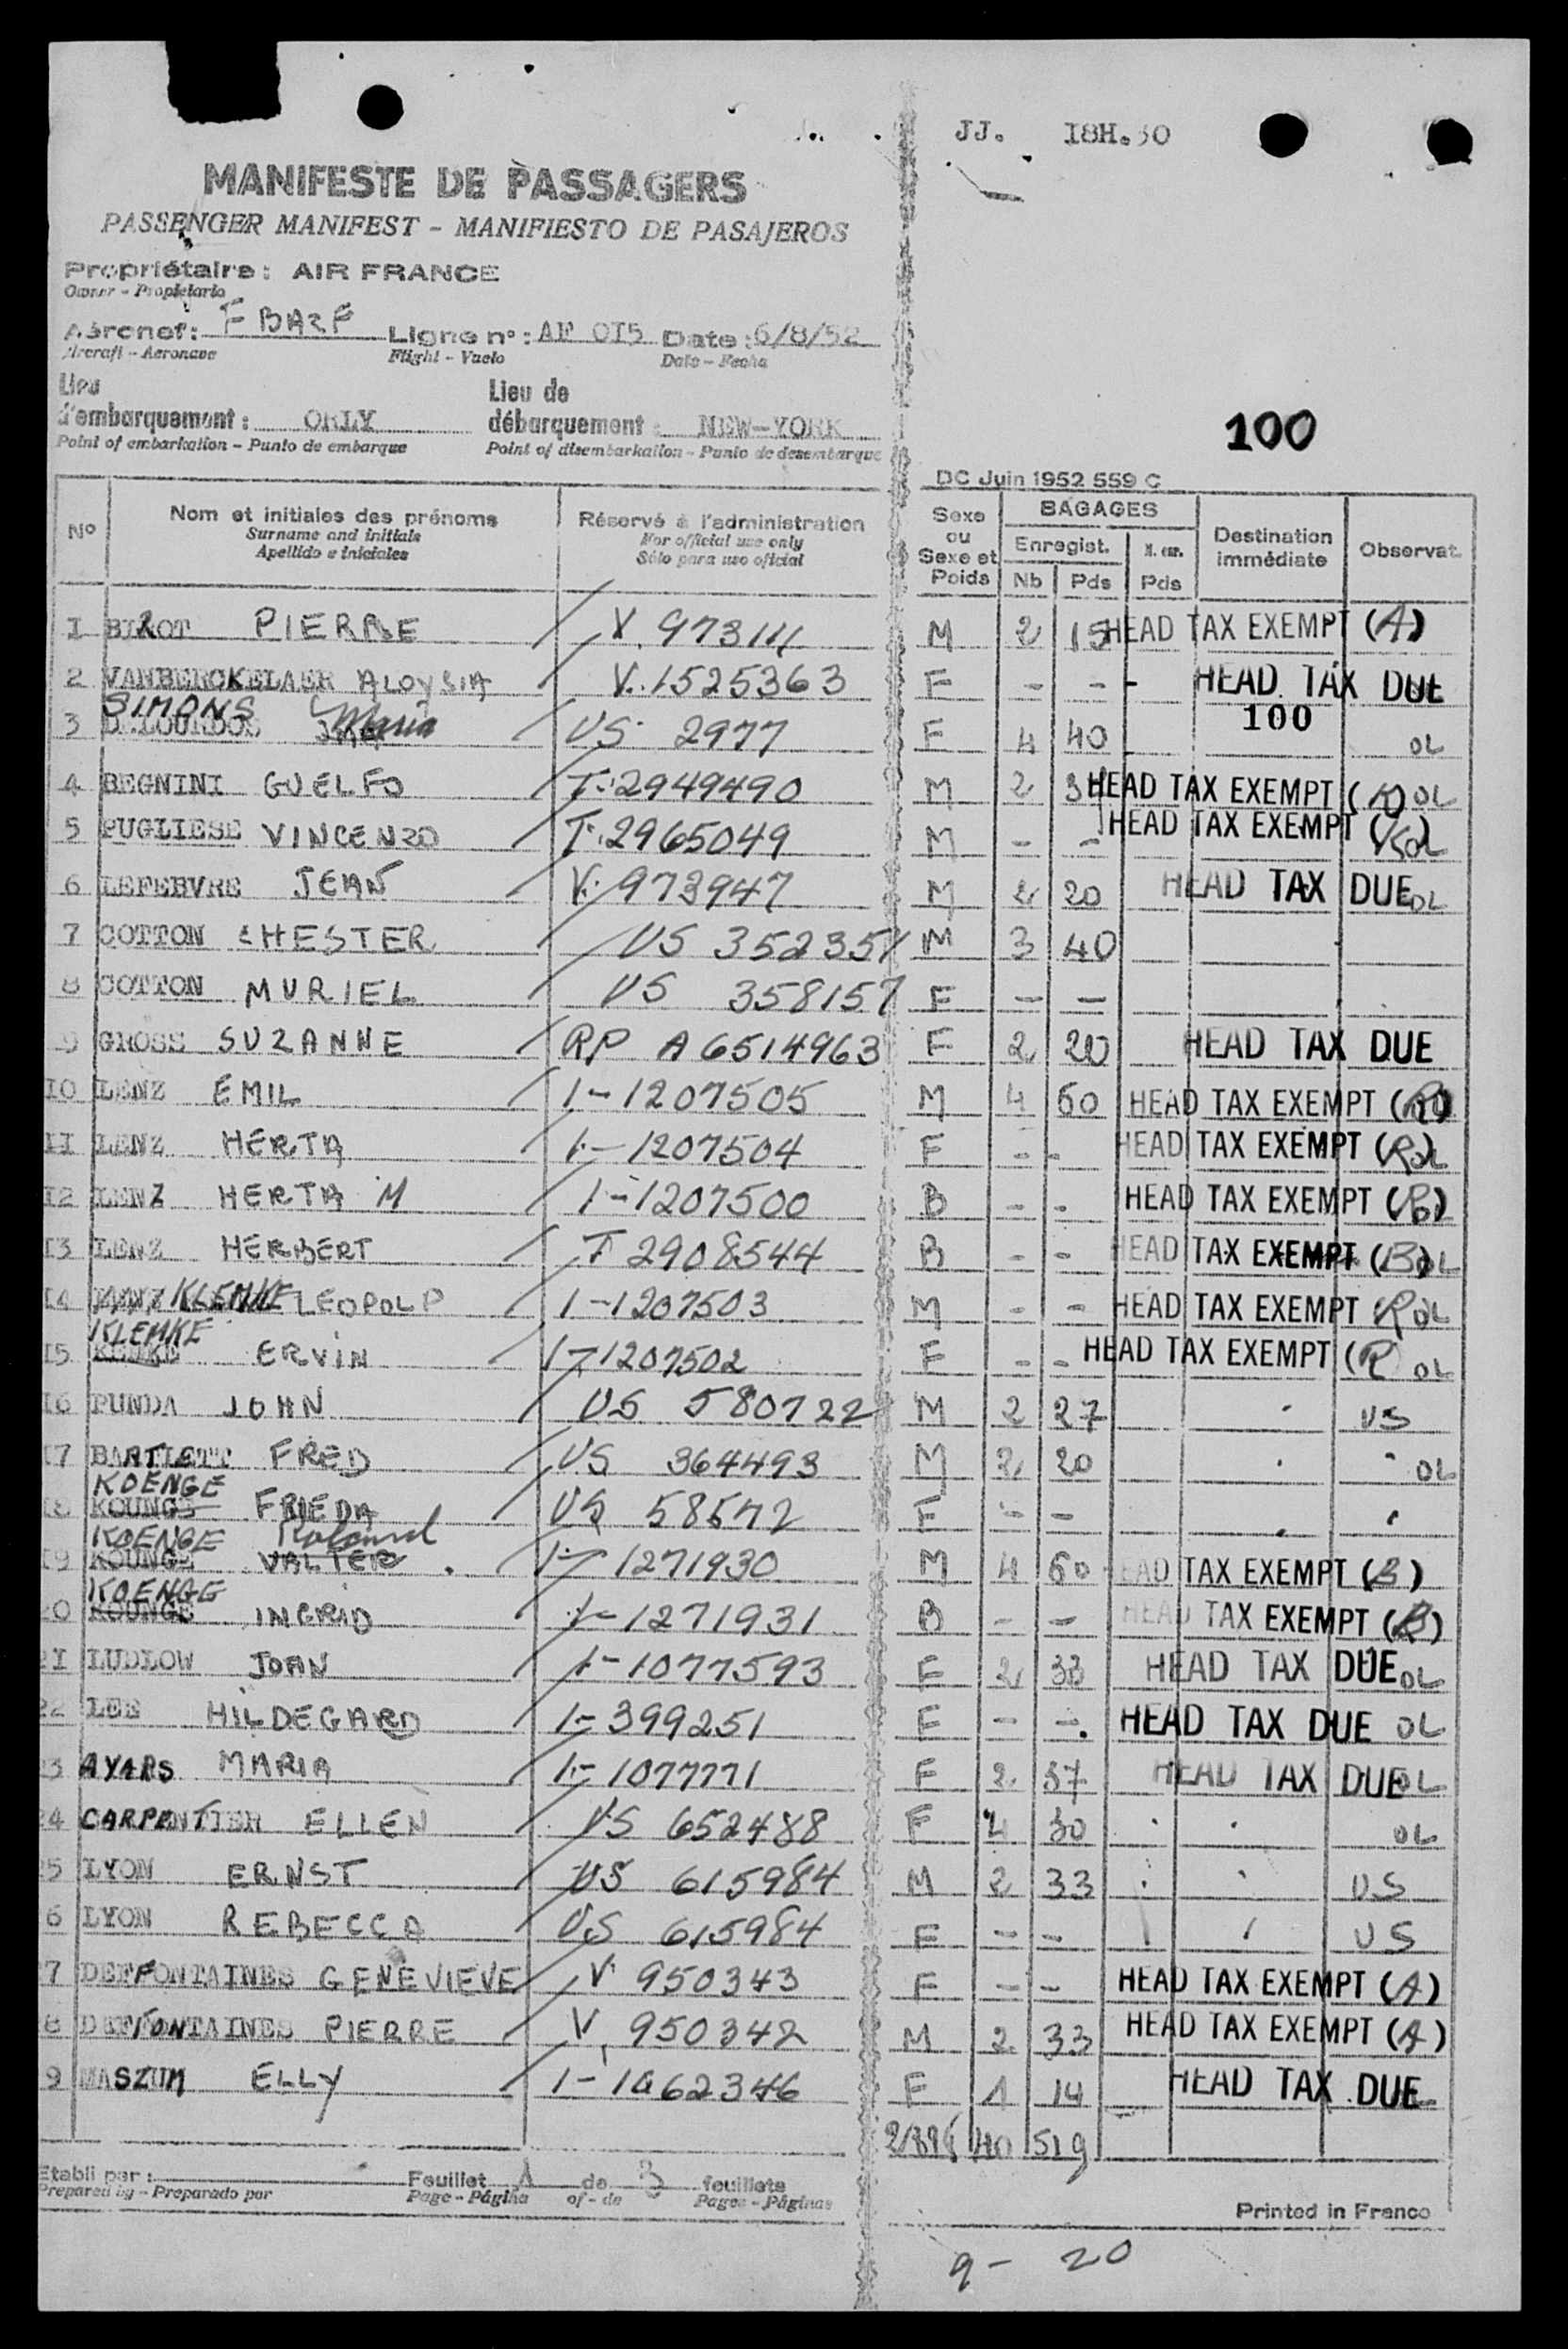 JJ. I8H.30
MANIFESTE DE PASSAGERS
PASSENGER MANIFEST - MANIFIESTO DE PASAJEROS
Propriétaire: AIR FRANCE
Owner - Propietario
Aéronef: F BAZF Ligne n°: AF 0I5 Date: 6/8/52
Aircraft - Aeronave Flight - Vuelo Date - Fecha
Lieu d'embarquement: ORLY Lieu de débarquement: NEW-YORK
Point of embarkation - Punto de embarque Point of disembarkation - Punto de desembarque
100
DC Juin 1952 559 C
N° Nom et initiales des prénoms Réservé à l'administration Sexe ou Sexe et Poids BAGAGES Destination immédiate Observat.
Surname and initials For official use only Enregist. N. enr.
Apellido e iniciales Sólo para uso oficial Nb Pds Pds
I BIROT PIERRE V. 973111 M 2 15 HEAD TAX EXEMPT (A)
2 VANBERCKELAER ALOYSIA V. 1525363 F - - - HEAD TAX DUE
SIMONS Maria 100
3 US 2977 F 4 40 OL
4 BEGNINI GUELFO T. 2949490 M 2 HEAD TAX EXEMPT ( ) OL
5 PUGLIESE VINCENZO T. 2965049 M - - HEAD TAX EXEMPT
6 LEFEBVRE JEAN V. 973947 M 2 20 HEAD TAX DUE OL
7 COTTON CHESTER US 352351 M 3 40
8 COTTON MURIEL US 358157 F - -
9 GROSS SUZANNE RP A6514963 F 2 20 HEAD TAX DUE
I0 LENZ EMIL I-1207505 M 4 60 HEAD TAX EXEMPT (R)
II LENZ HERTA I-1207504 F - - HEAD TAX EXEMPT (R) OL
I2 LENZ HERTA M I-1207500 B - - HEAD TAX EXEMPT (B)
I3 LENZ HERBERT T 2908544 B - - HEAD TAX EXEMPT (B) OL
I4 KLEMKE LEOPOLD I-1207503 M - - HEAD TAX EXEMPT R OL
KLEMKE
I5 ERVIN I-1207502 F - - HEAD TAX EXEMPT (R) OL
I6 PUNDA JOHN US 580722 M 2 27 US
I7 BARTLETT FRED US 364493 M 2 20 OL
KOENGE
I8 KOUNGE FRIEDA US 58572 F - -
KOENGE Roland
I9 KOUNGE VALTER I-1271930 M 4 60 HEAD TAX EXEMPT (B)
KOENGE
20 KOUNGE INGRID I-1271931 B - - HEAD TAX EXEMPT (B)
2I LUDLOW JOAN I-1077593 F 2 33 HEAD TAX DUE OL
22 LEE HILDEGARD I-399251 F - - HEAD TAX DUE OL
3 AYARS MARIA I-1077771 F 2 37 HEAD TAX DUE OL
24 CARPENTIER ELLEN US 652488 F 4 30 OL
25 LYON ERNST US 615984 M 2 33 US
6 LYON REBECCA US 615984 F - - US
7 DEFFONTAINES GENEVIEVE V 950343 F - - HEAD TAX EXEMPT (A)
8 DEFFONTAINES PIERRE V 950342 M 2 33 HEAD TAX EXEMPT (A)
9 MASZUM ELLY I-1062346 F 1 14 HEAD TAX DUE
40 519
Etabli par: Feuillet 1 de 3 feuillets
Prepared by - Preparado por Page - Página of - de Pages - Páginas
Printed in France
9 - 20